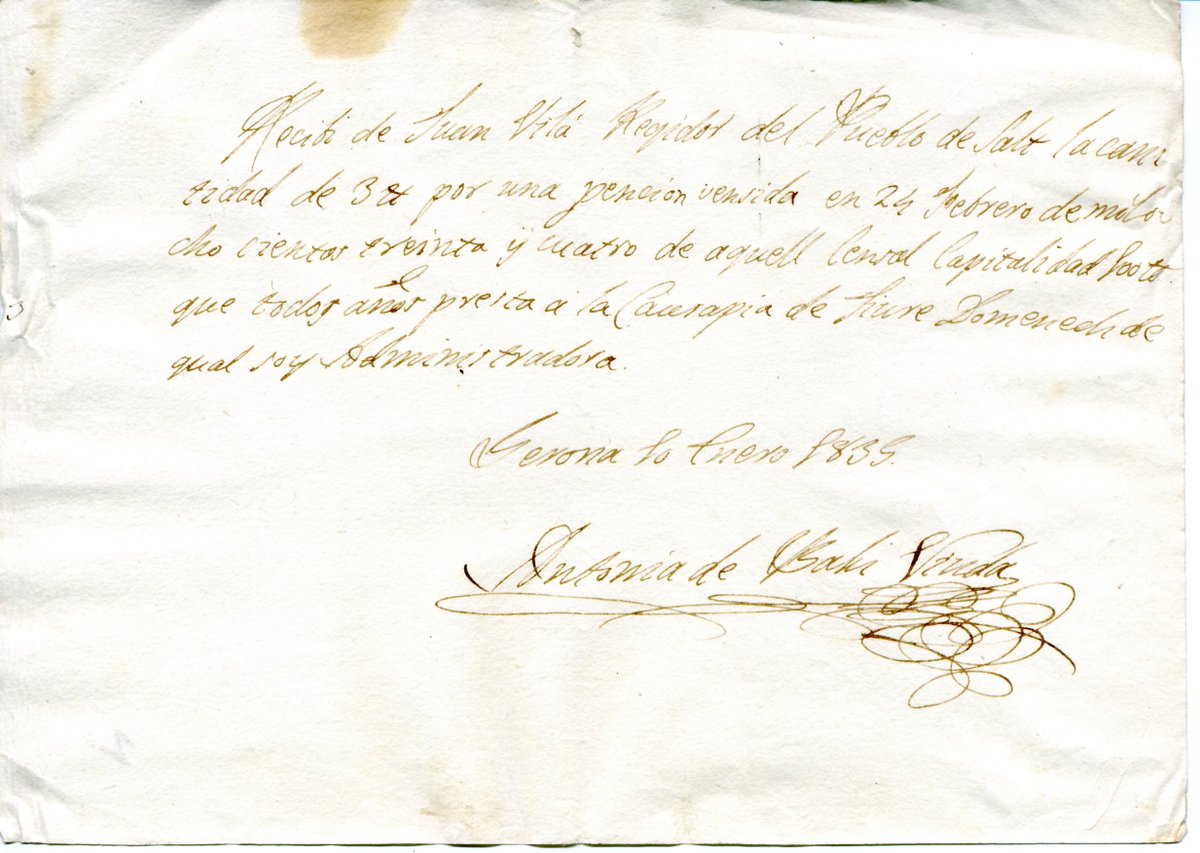 Recibi de Juan Vilá Regidor del Pueblo de Salt la can
tidad de 3 tt por una pencion vensida en 24 Febrero de mil o
cho cientos treinta y cuatro de aquell Censal Capitalidad 100 tt
que todos años presta a la Causapia de Domenech de
qual soy Administradora.
Gerona 10 Enero 1835.
Antonia de Viuda
3